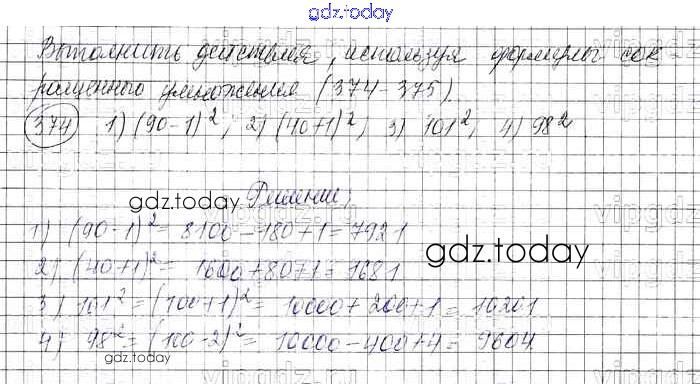 gdz.today
Выполнить действия, используя формулы сок
ращенного умножения (374-375).
374 1) (90-1)², 2) (40+1)², 3) 101², 4) 98²
gdz.today Решение:
1) (90-1)² = 8100-180+1=7921
gdz.today
2) (40+1)² = 1600+80+1=1681
3) 101² = (100+1)² = 10000+200+1=10201
4) 98² = (100-2)² = 10000-400+4= 9604.
gdz.today